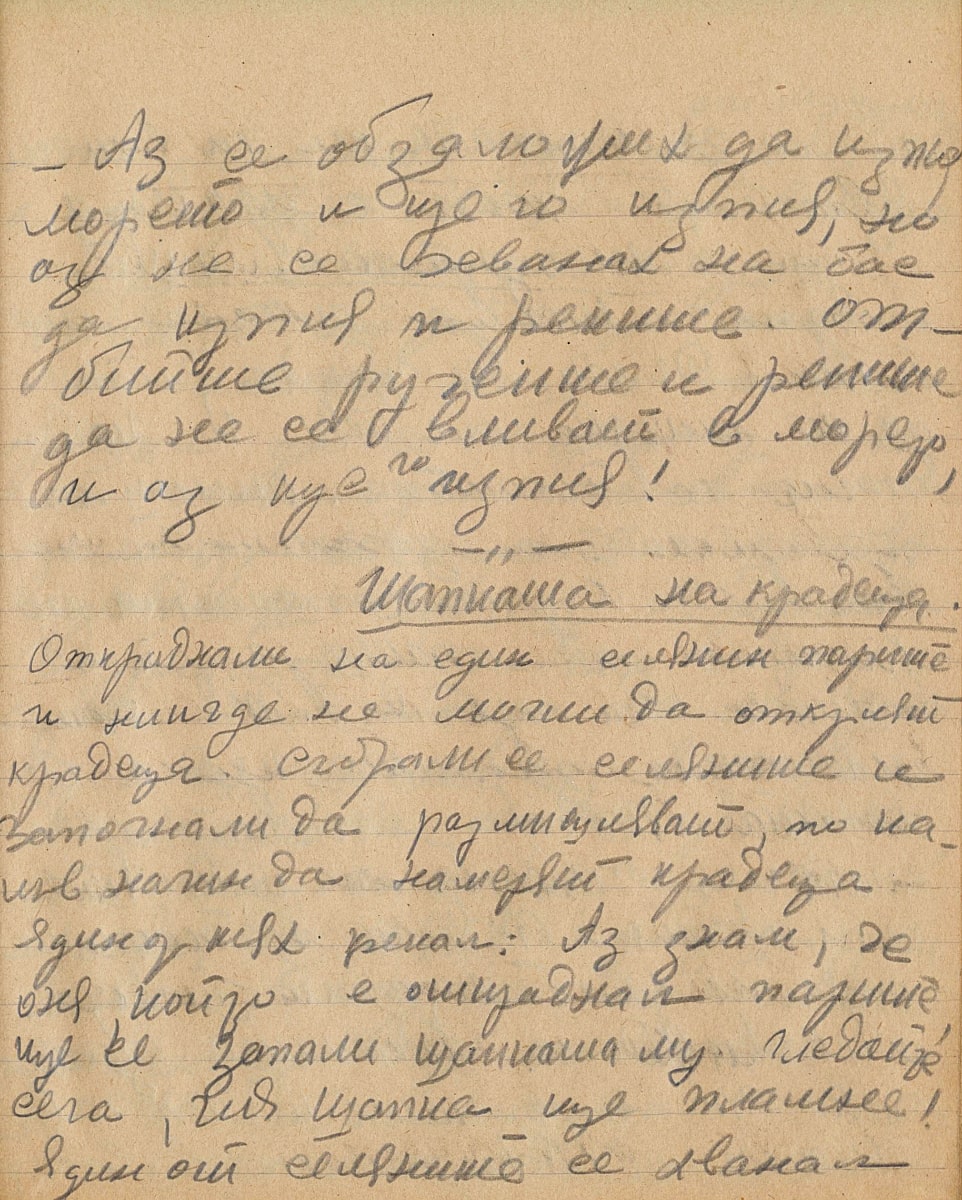 – Аз се обзаложих да изпия
морето и ще го изпия, но
аз не се хванах на бас
да изпия и реките. От-
бийте ручеите и реките
да не се вливат в морето,
и аз ще го изпия!
– „ –
Шапката на крадеца.
Откраднали на един селянин парите
и нийгде не могли да открият
крадеца. Събрали се селяните и
започнали да размишляват, по ка-
къв начин да намерят крадеца
Един от тях рекал: Аз знам, че
оня, който е откраднал парите,
ще се запали шапката му. Гледайте
сега, чия шапка ще пламне!
Един от селяните се хванал